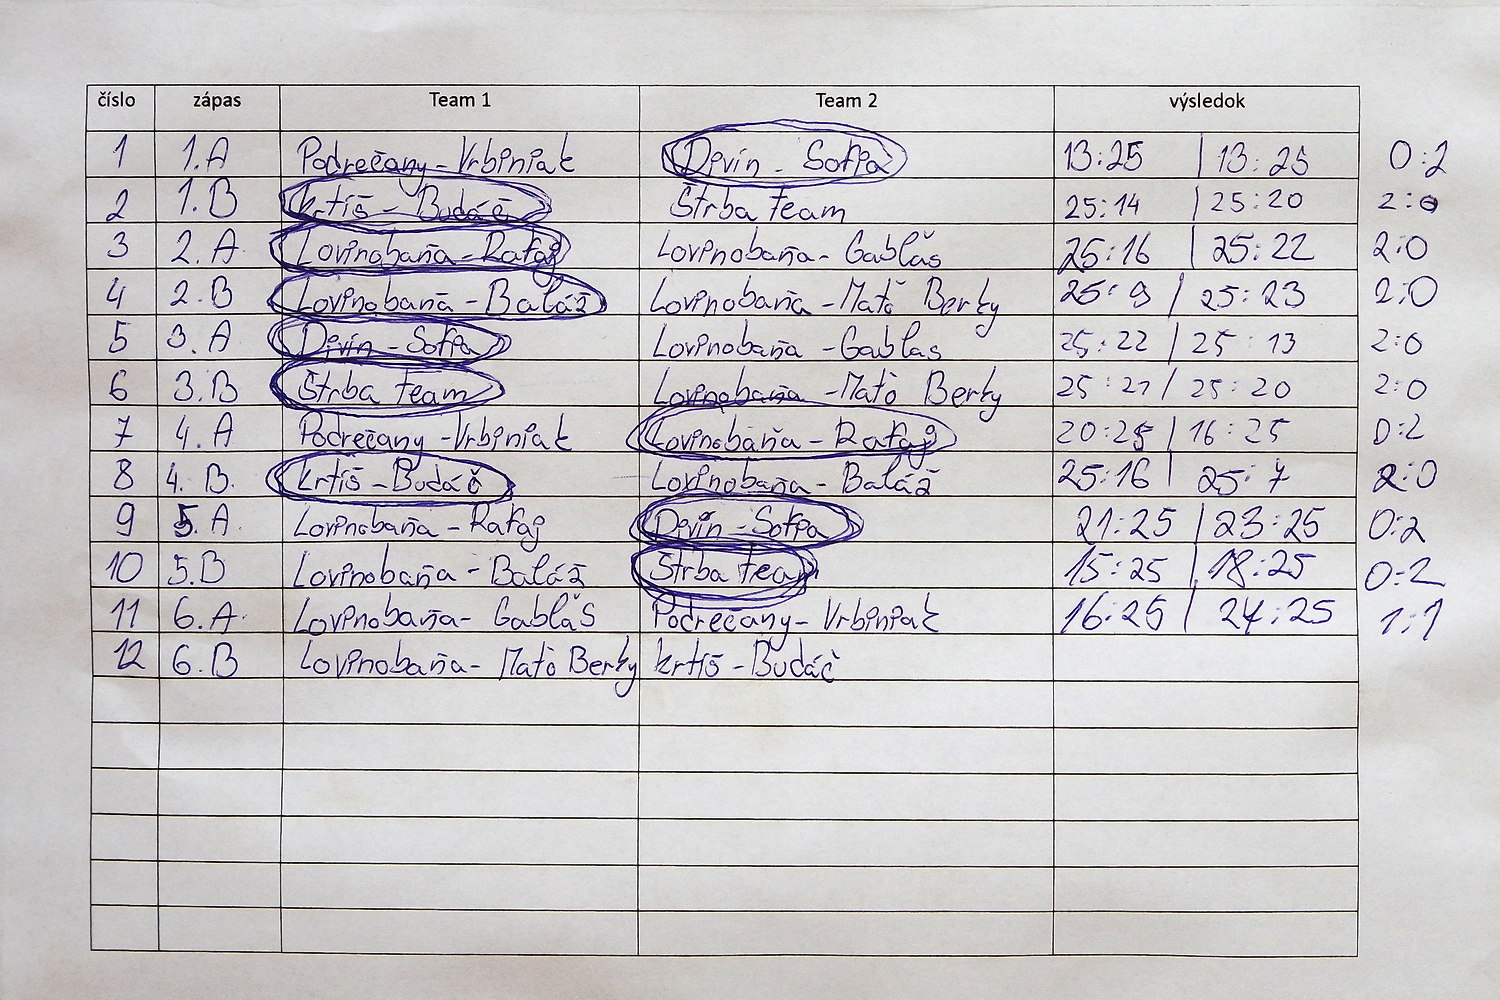 číslo zápas Team 1 Team 2 výsledok
1 1.A Podrečany - Vrbiniak Divín - Sofia 13:25 | 13:25 0:2
2 1.B Krtíš - Budáč Štrba team 25:14 | 25:20 2:0
3 2.A Lovinobaňa - Rafaj Lovinobaňa - Gabľáš 25:16 | 25:22 2:0
4 2.B Lovinobaňa - Baláž Lovinobaňa - Maťo Berky 25:9 / 25:23 2:0
5 3.A Divín - Sofia Lovinobaňa - Gablas 25:22 / 25:13 2:0
6 3.B Štrba team Lovinobaňa - Maťo Berky 25:21 / 25:20 2:0
7 4.A Podrečany - Vrbiniak Lovinobaňa - Rafaj 20:25 | 16:25 0:2
8 4.B. Krtíš - Budáč Lovinobaňa - Baláž 25:16 | 25:7 2:0
9 5.A. Lovinobaňa - Rafaj Divín - Sofia 21:25 | 23:25 0:2
10 5.B Lovinobaňa - Baláž Štrba team 15:25 | 18:25 0:2
11 6.A. Lovinobaňa - Gabľáš Podrečany - Vrbiniak 16:25 | 24:25 1:1
12 6.B Lovinobaňa - Maťo Berky Krtíš - Budáč